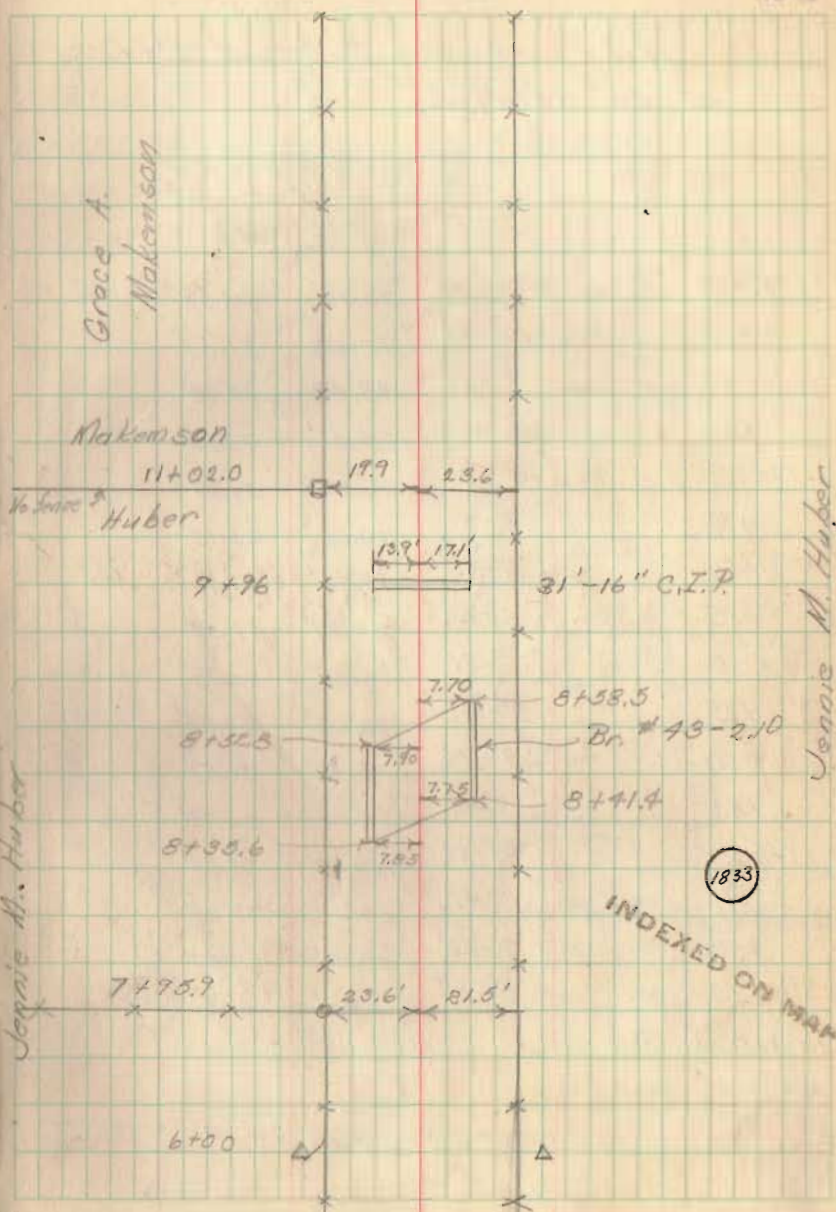 Grace A.
Makemson
Makemson
11+02.0
19.9
23.6
No fence
Huber
13.9'
17.1'
9+96
31'-16" C.I.P.
Jennie M. Huber
7.70
8+58.5
8+52.8
7.90
Br. #43-2.10
7.75
8+41.4
8+35.6
7.85
1833
Jennie M. Huber
INDEXED ON MAP
7+95.9
23.6'
21.5'
6+00